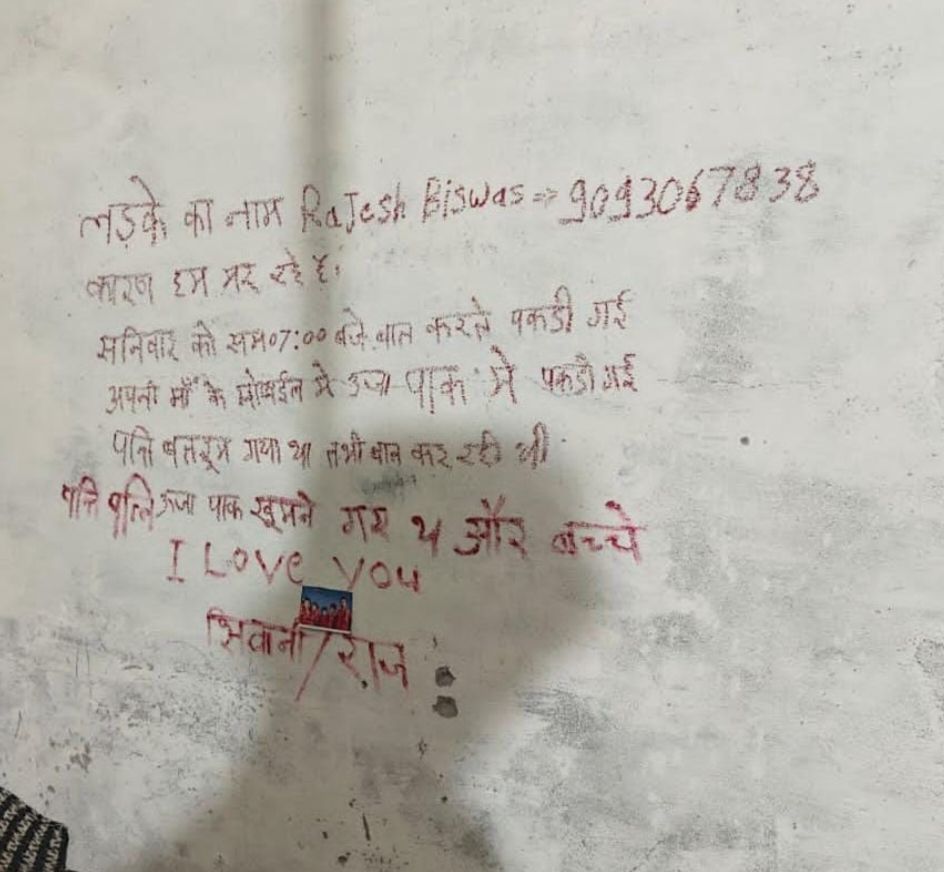 लड़के का नाम RaJesh Biswas => 9093067838
कारण हम मर रहे है।
सनिवार को सम07:00 बजे बात करते पकडी गई
अपनी माँ के मोबाईल मे उजा पाक मे पकडी गई
पति बतरूम गया था तभी बात कर रही थी
पति पत्नि ऊजा पाक घूमने गए थ और बच्चे
I Love you
शिवानी/राज